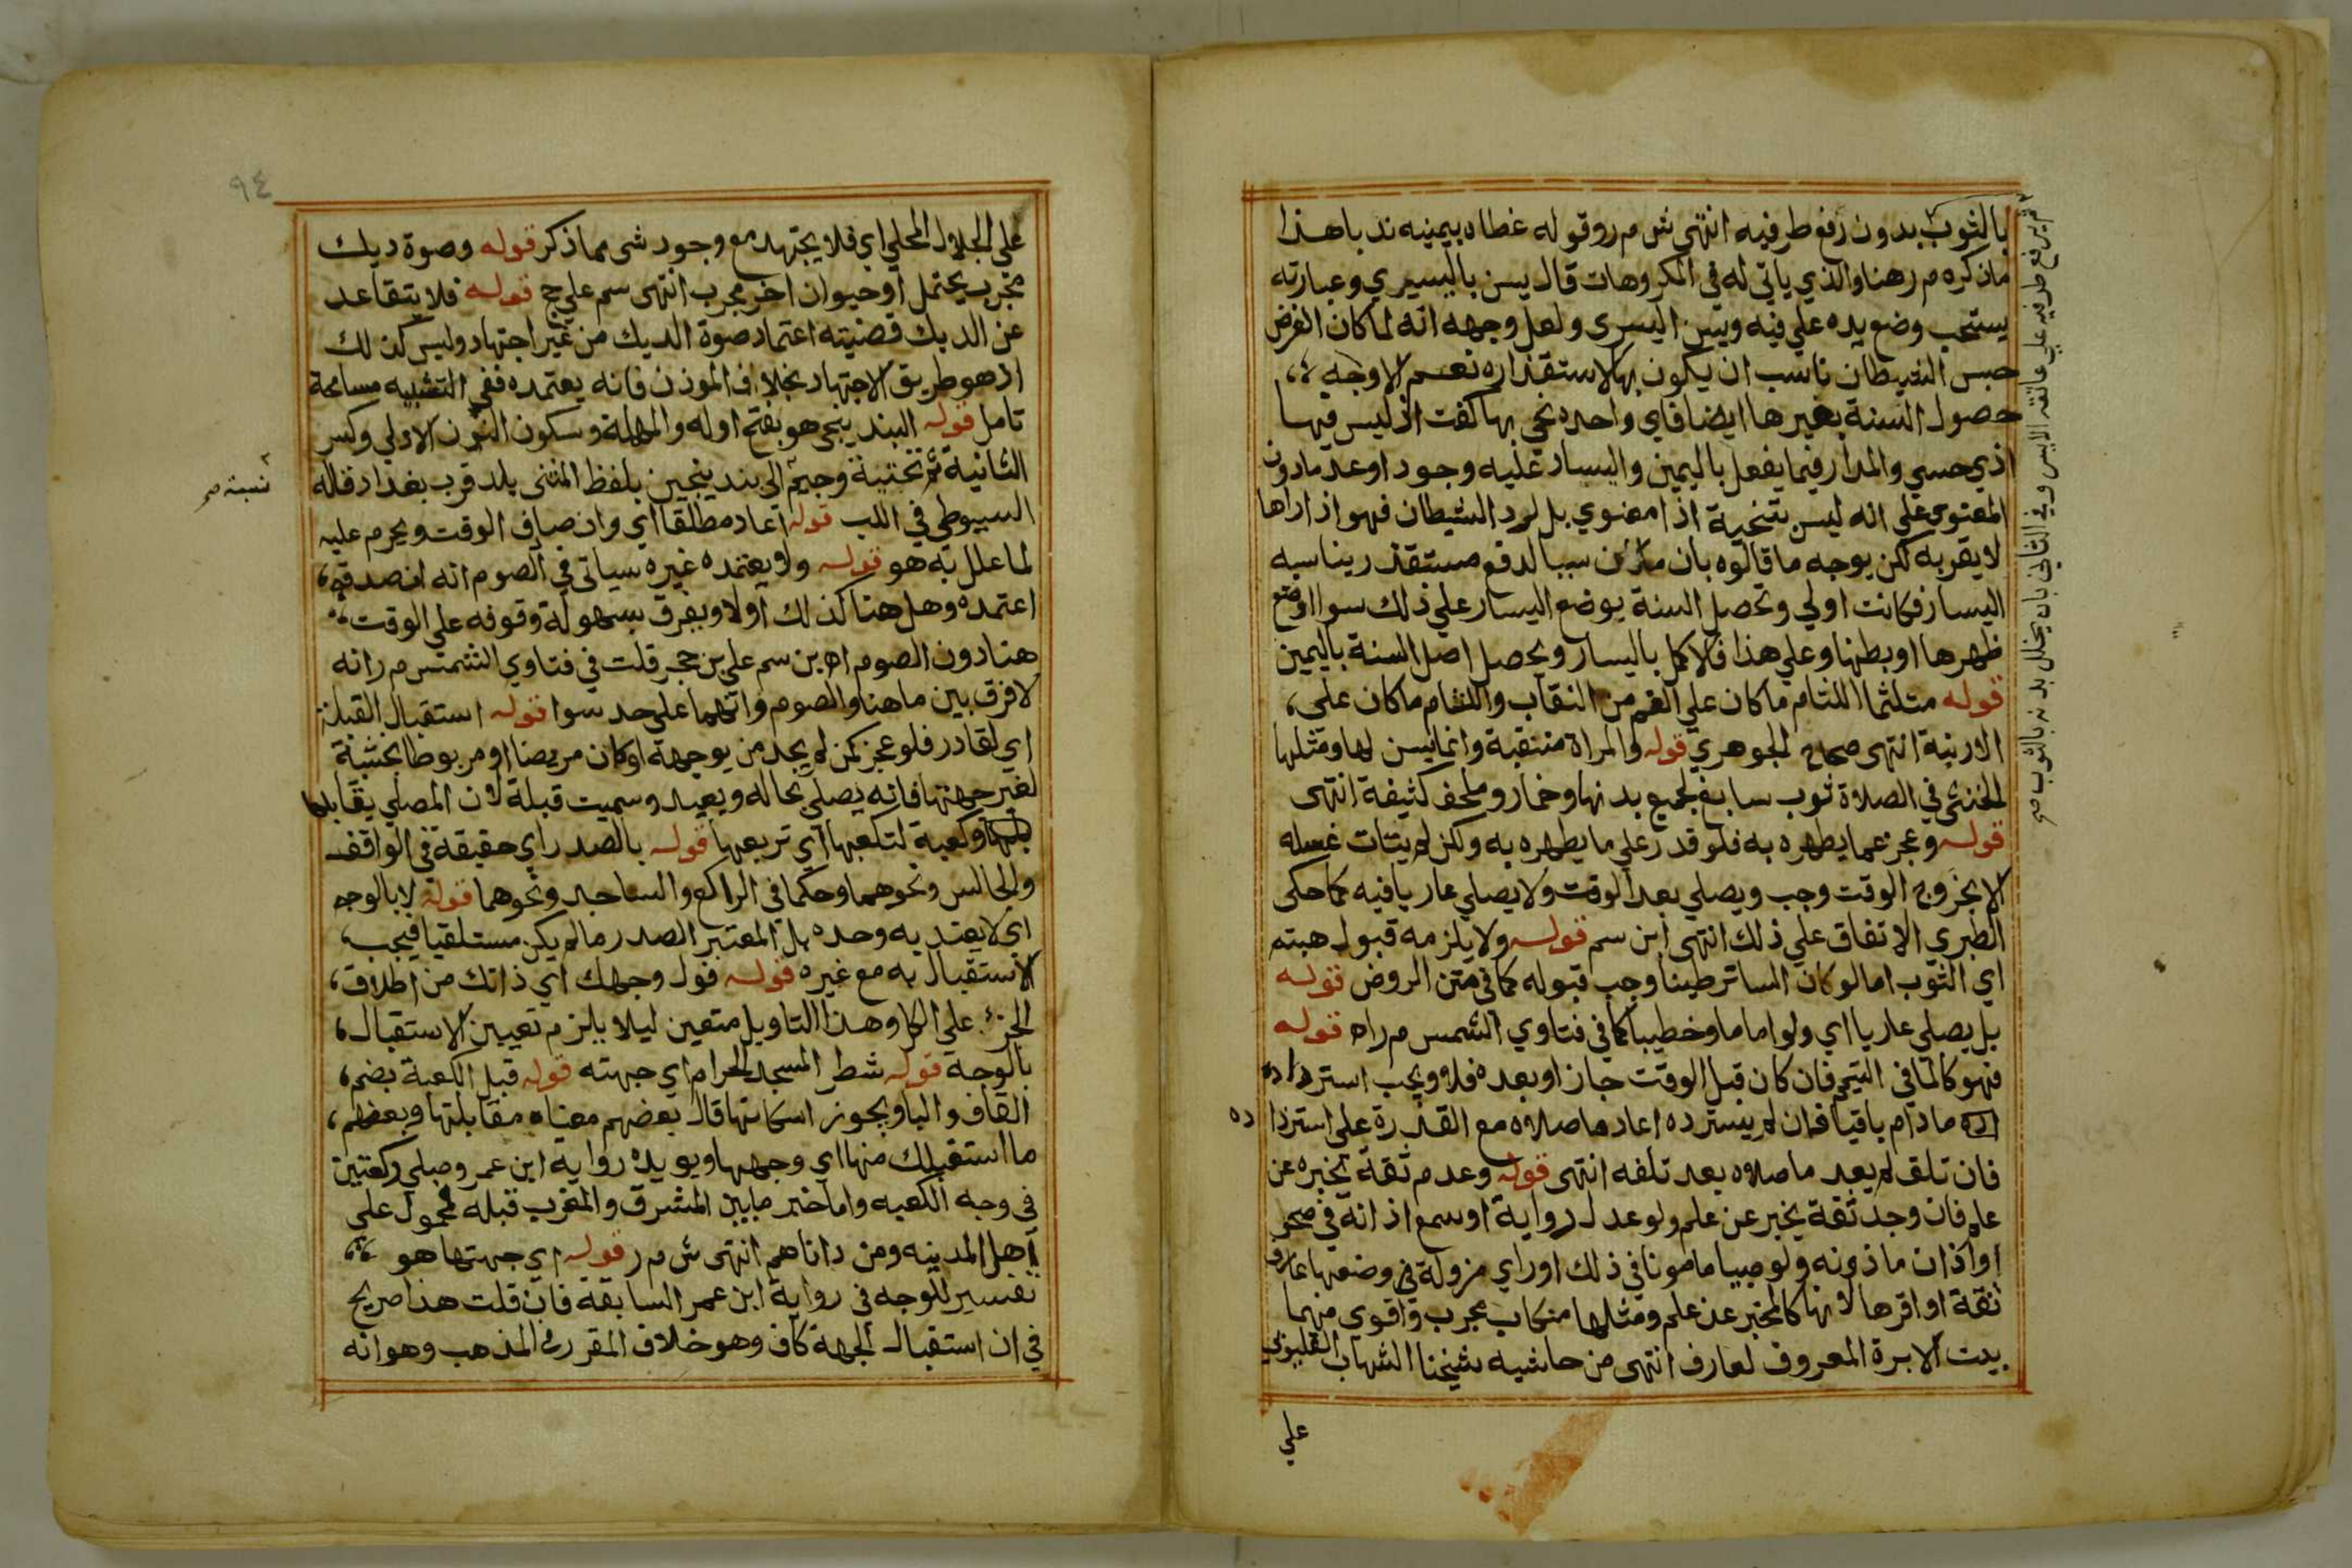 بالثوب بدون رفع طرفيه انتهى ش م ر وقوله غطاه بيمينه ندبا هذا
ماذكره م ر هنا والذي ياتي له في المكروهات قال يسن باليسري وعبارته
يستحب وضع يده علي فيه ويسن اليسرى ولعل وجهه انه لما كان الغرض
حبس الشيطان ناسب ان يكون بها لاستقذاره نعم الاوجه
حصول السنة بغيرها ايضا فاي واحده نحي بها كفت اذ ليس فيها
اذي حسي والمدار فيما يفعل باليمين واليسار عليه وجودا وعدما دون
المعنوي علي انه ليس بتنحية اذا معنوي بل لرد الشيطان فهو اذا راها
لا يقربه لكن يوجه ما قالوه بان سببا لدفع مستقذر يناسبه
اليسار فكانت اولي وتحصل السنة بوضع اليسار علي ذلك سوا اوضع
ظهرها او بطنها وعلي هذا فالاكمل باليسار ويحصل اصل السنة باليمين
قوله متلثما اللثام ما كان علي الفم من النقاب واللفام ما كان علي
الارنبة انتهى صحاح الجوهري قوله والمراة منتقبة وانما يسن لها ومثلها
الخنثي في الصلاة ثوب سابغ لجميع بدنها وخمار وملحف كثيفة انتهى
قوله وعجز عما يطهره به فلو قدر علي ما يطهره به ولكن لم يتات غسله
الا بخروج الوقت وجب ويصلي بعد الوقت ولا يصلي عاريا فيه كما حكى
الطبري الاتفاق علي ذلك انتهى ابن سم قوله ولا يلزمه قبول هبته
اي الثوب اما لو كان الساتر طينا وجب قبوله كما في متن الروض قوله
بل يصلي عاريا اي ولو اماما وخطيبا كما في فتاوي الشمس م ر اه قوله
فهو كالما في التيمم فان كان قبل الوقت جاز او بعده فلا ويجب استرداده
مادام باقيا فان لم يسترده اعاد ما صلاه مع القدرة علي استردا ده
فان تلف لم يعد ما صلاه بعد تلفه انتهى قوله وعدم ثقة يخبره عن
علم فان وجد ثقة يخبر عن علم ولو عدل رواية او سمع اذانه في صحو
او اذان ماذونه ولو صبيا مامونا في ذلك او راي مزولة في وضعها عارف
ثقة او اقرها لانها كالمخبر عن علم ومثلها منكاب مجرب واقوي منهما
بيت الابرة المعروف لعارف انتهى من حاشيه شيخنا الشهاب القليوبي
علي
ثم يرفع طرفيه علي عاتقه الايسر وفي الثاني بان يخلل بدنه بالثوب صح
٩٤
علي الجلال المحلي اي فلا يجتهد مع وجود شى مما ذكر قوله وصوة ديك
مجرب يحتمل او حيوان اخر مجرب انتهى سم علي حج قوله فلا يتقاعد
عن الديك قضيته اعتماد صوة الديك من غير اجتهاد وليس كذلك
اذ هو طريق الاجتهاد بخلاف الموذن فانه يعتمده ففي التشبيه مسامحة
تامل قوله البندنيجي هو بفتح اوله والمهملة وسكون النون الاولي وكسر
الثانية ثم تحتية وجيم الى بندنيجين بلفظ المثنى بلد قرب بغداد قاله
نسبة صح
السيوطي في اللب قوله اعاد مطلقا اي وان صادف الوقت ويحرم عليه
لما علل به هو قوله ولا يعتمده غيره سياتى في الصوم انه ان صدقه
اعتمده وهل هنا كذلك اولا ويفرق بسهولة وقوفه علي الوقت
هنا دون الصوم اه بن سم علي بن حجر قلت في فتاوي الشمس م ر انه
لا فرق بين ما هنا والصوم وانهما علي حد سوا قوله استقبال القبلة
اي لقادر فلو عجز كمن لم يجد من يوجهه او كان مريضا او مربوطا بخشبة
لغير جهتها فانه يصلي بحاله ويعيد وسميت قبلة لان المصلي يقابلها
وكعبة لتكعبها اي تربعها قوله بالصدر اي حقيقة في الواقف
والجالس ونحوهما وحكما في الراكع والساجد ونحوهما قوله لا بالوجه
اي لا يعتد به وحده بل المعتبر الصدر مالم يكن مستلقيا فيجب
الاستقبال به مع غيره قوله فول وجهك اي ذاتك من اطلاق
الجزء علي الكل وهذا التاويل متعين ليلا يلزم تعيين الاستقبال
بالوجه قوله شطر المسجد الحرام اي جهته قوله قبل الكعبة بضم
القاف والبا ويجوز اسكانها قال بعضهم معناه مقابلتها وبعضهم
ما استقبلك منها اي وجهها ويويده رواية ابن عمر وصلي ركعتين
في وجه الكعبه واما خبر ما بين المشرق والمغرب قبله فمحمول علي
اهل المدينه ومن داناهم انتهى ش م ر قوله اي جهتها هو
تفسير للوجه في رواية ابن عمر السابقة فان قلت هذا صريح
في ان استقبال الجهة كاف وهو خلاف المقرر في المذهب وهو انه